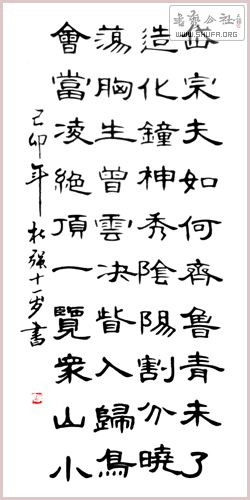 岱宗夫如何齊魯青未了
造化鐘神秀陰陽割分曉
蕩胸生曾雲决眥入歸鳥
會當凌絶頂一覽衆山小
己卯年杜强十一岁書
書藝公社
WWW.SHUFA.ORG